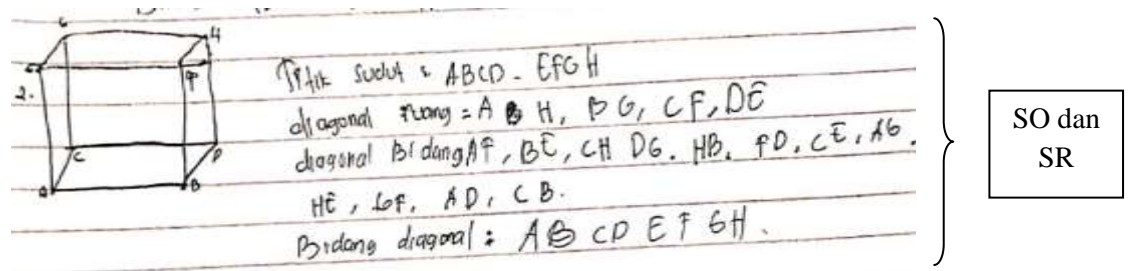 G
H
E
F
2.
C
D
A
B
Titik Sudut : ABCD. EFGH
diagonal ruang = A H, BG, CF, DE
diagonal Bidang AF, BE, CH DG. HB, FD, CE, AG.
HE, GF, AD, CB.
Bidang diagonal : AB CD EF GH.
SO dan
SR